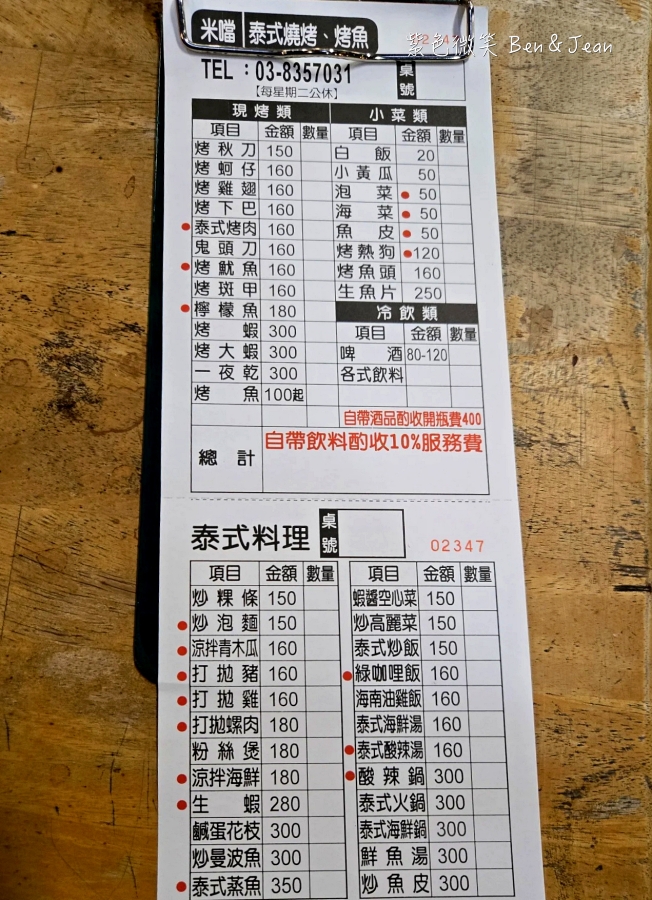 米噹 泰式燒烤、烤魚
紫色微笑 Ben & Jean
TEL：03-8357031
【每星期二公休】
桌號
現烤類 小菜類
項目 金額 數量 項目 金額 數量
烤秋刀 150 白飯 20
烤蚵仔 160 小黃瓜 50
烤雞翅 160 泡菜 50
烤下巴 160 海菜 50
泰式烤肉 160 魚皮 50
鬼頭刀 160 烤熱狗 120
烤魷魚 160 烤魚頭 160
烤斑甲 160 生魚片 250
檸檬魚 180 冷飲類
烤蝦 300 項目 金額 數量
烤大蝦 300 啤酒 80-120
一夜乾 300 各式飲料
烤魚 100起
自帶酒品酌收開瓶費400
總計 自帶飲料酌收10%服務費
泰式料理 桌號 02347
項目 金額 數量 項目 金額 數量
炒粿條 150 蝦醬空心菜 150
炒泡麵 150 炒高麗菜 150
涼拌青木瓜 160 泰式炒飯 150
打拋豬 160 綠咖哩飯 160
打拋雞 160 海南油雞飯 160
打拋螺肉 180 泰式海鮮湯 160
粉絲煲 180 泰式酸辣湯 160
涼拌海鮮 180 酸辣鍋 300
生蝦 280 泰式火鍋 300
鹹蛋花枝 300 泰式海鮮鍋 300
炒曼波魚 300 鮮魚湯 300
泰式蒸魚 350 炒魚皮 300